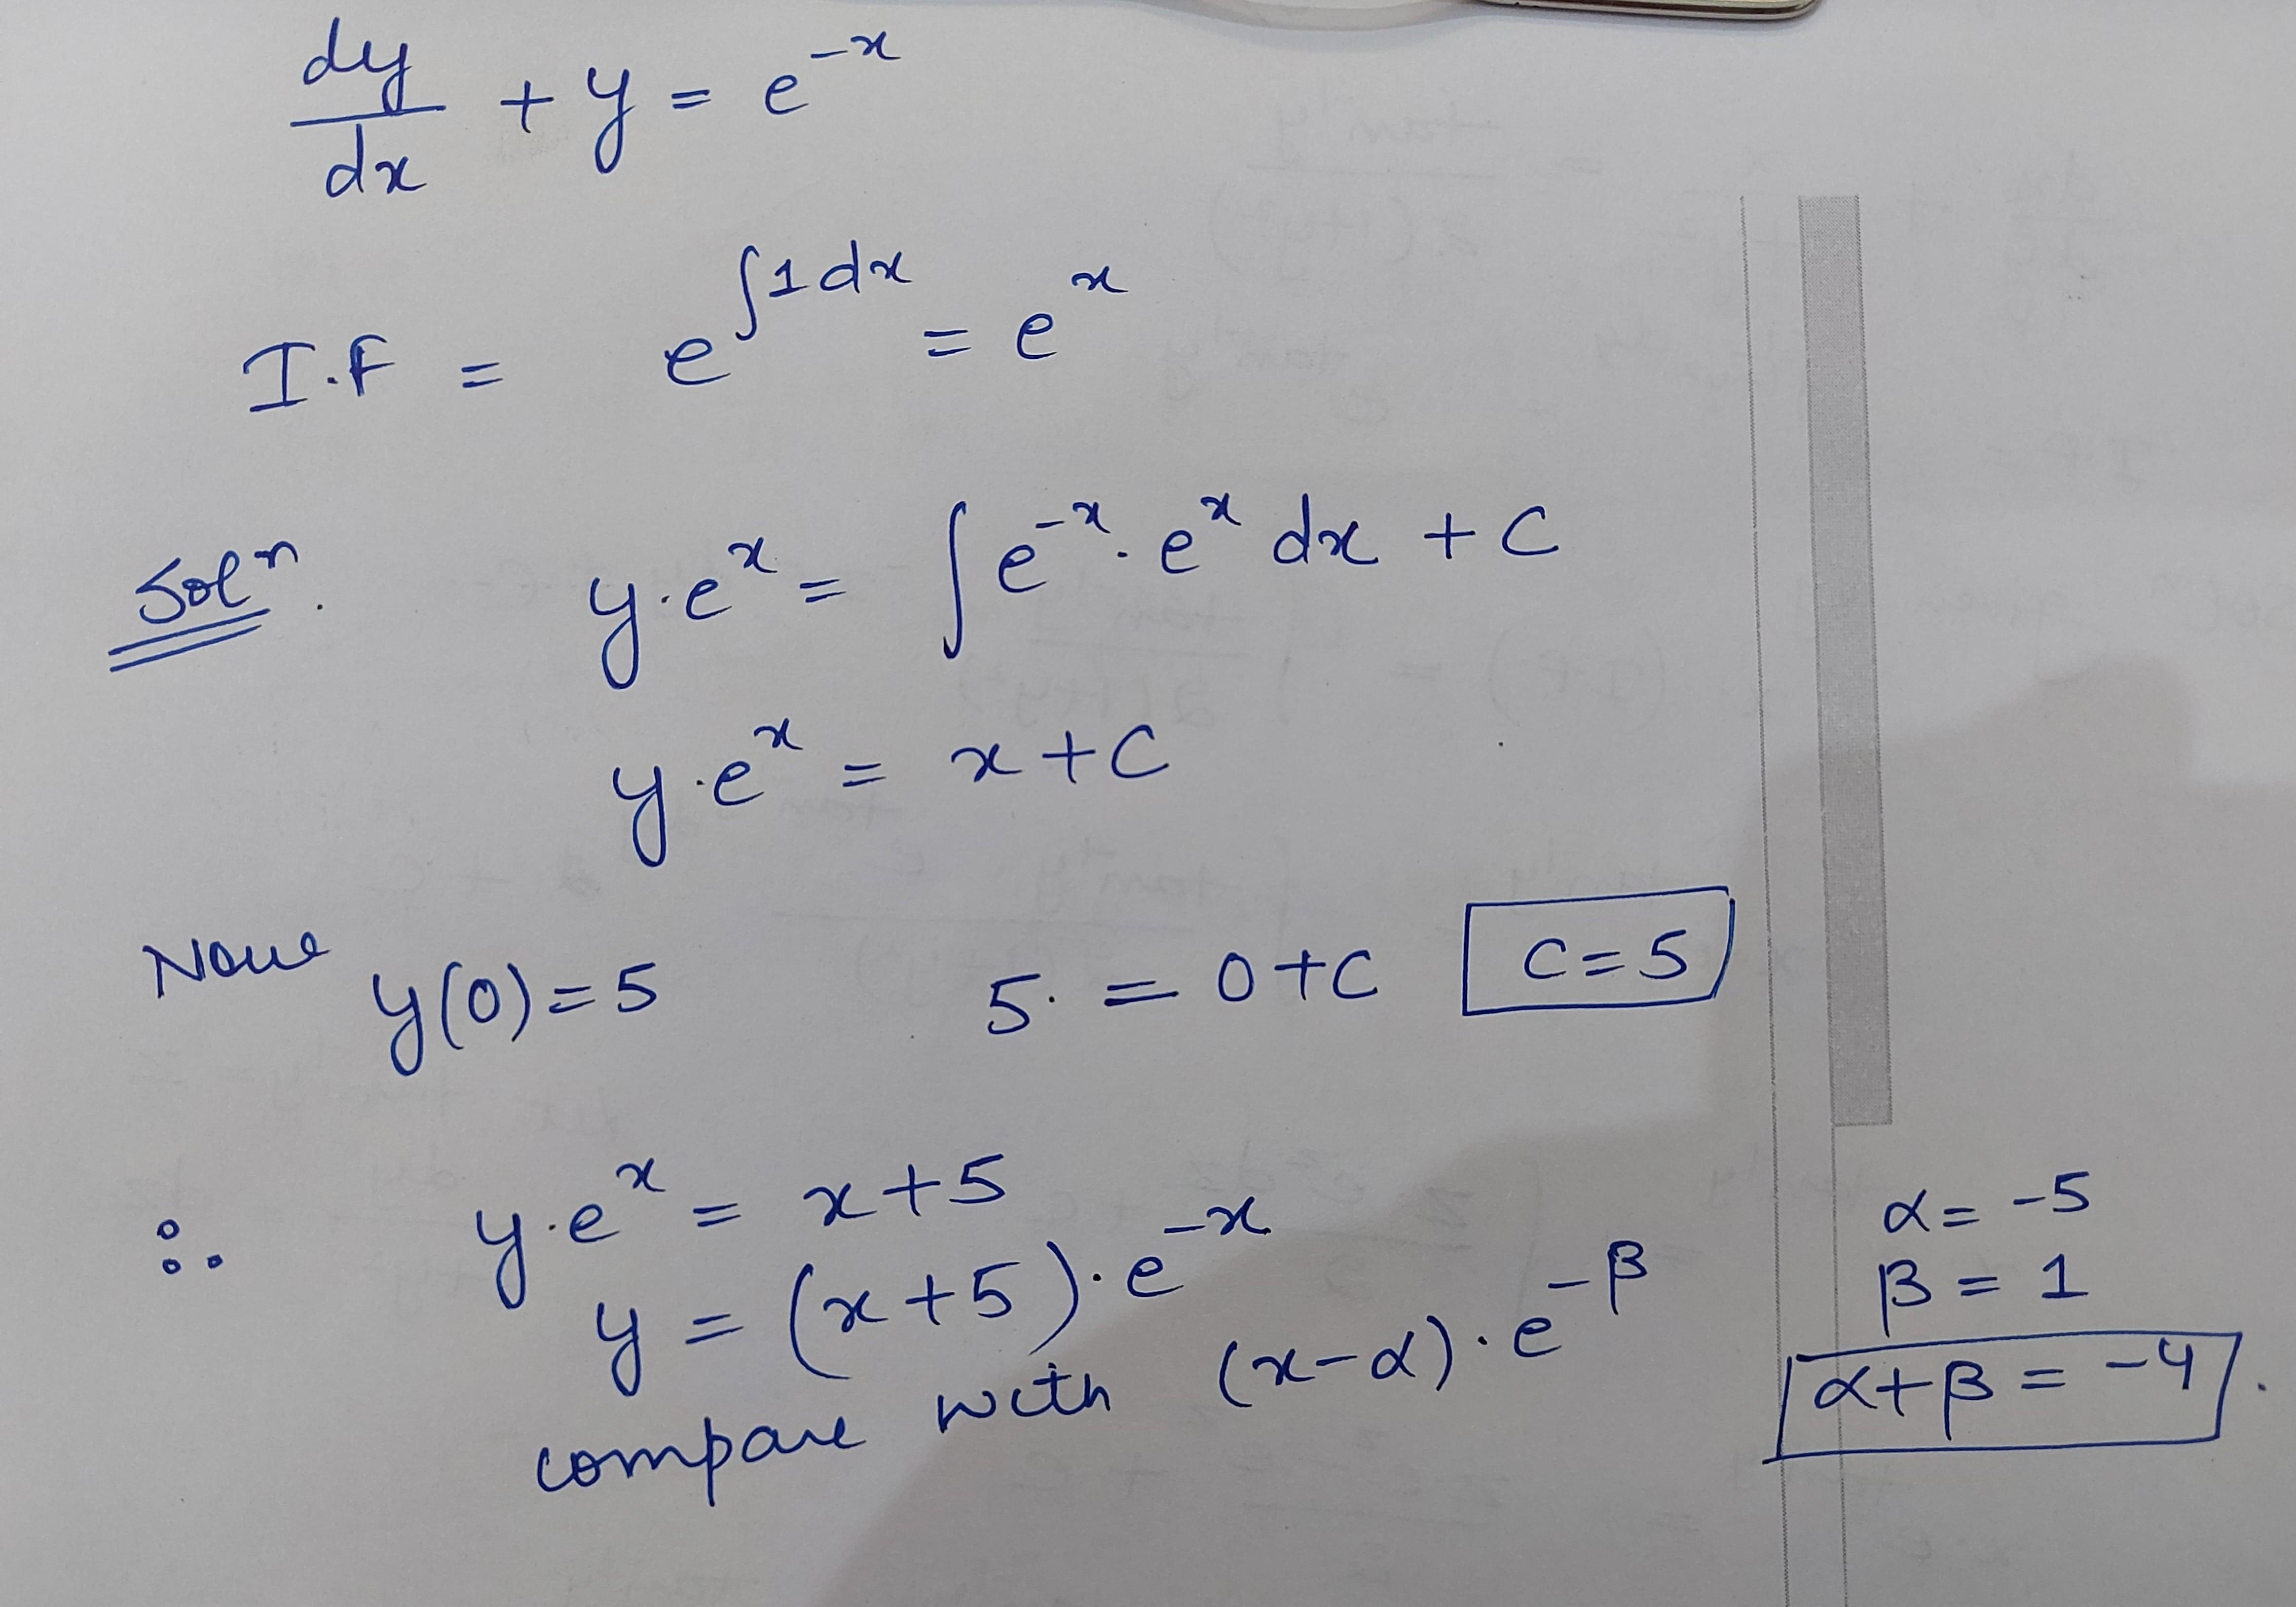 dy/dx + y = e^-x
I.F = e^∫1dx = e^x
Solⁿ. y·e^x = ∫e^-x · e^x dx + C
y·e^x = x + C
Now y(0) = 5 5. = 0 + C C = 5
∴ y·e^x = x + 5
y = (x + 5)·e^-x
compare with (x - α)·e^-β
α = -5
β = 1
α + β = -4.